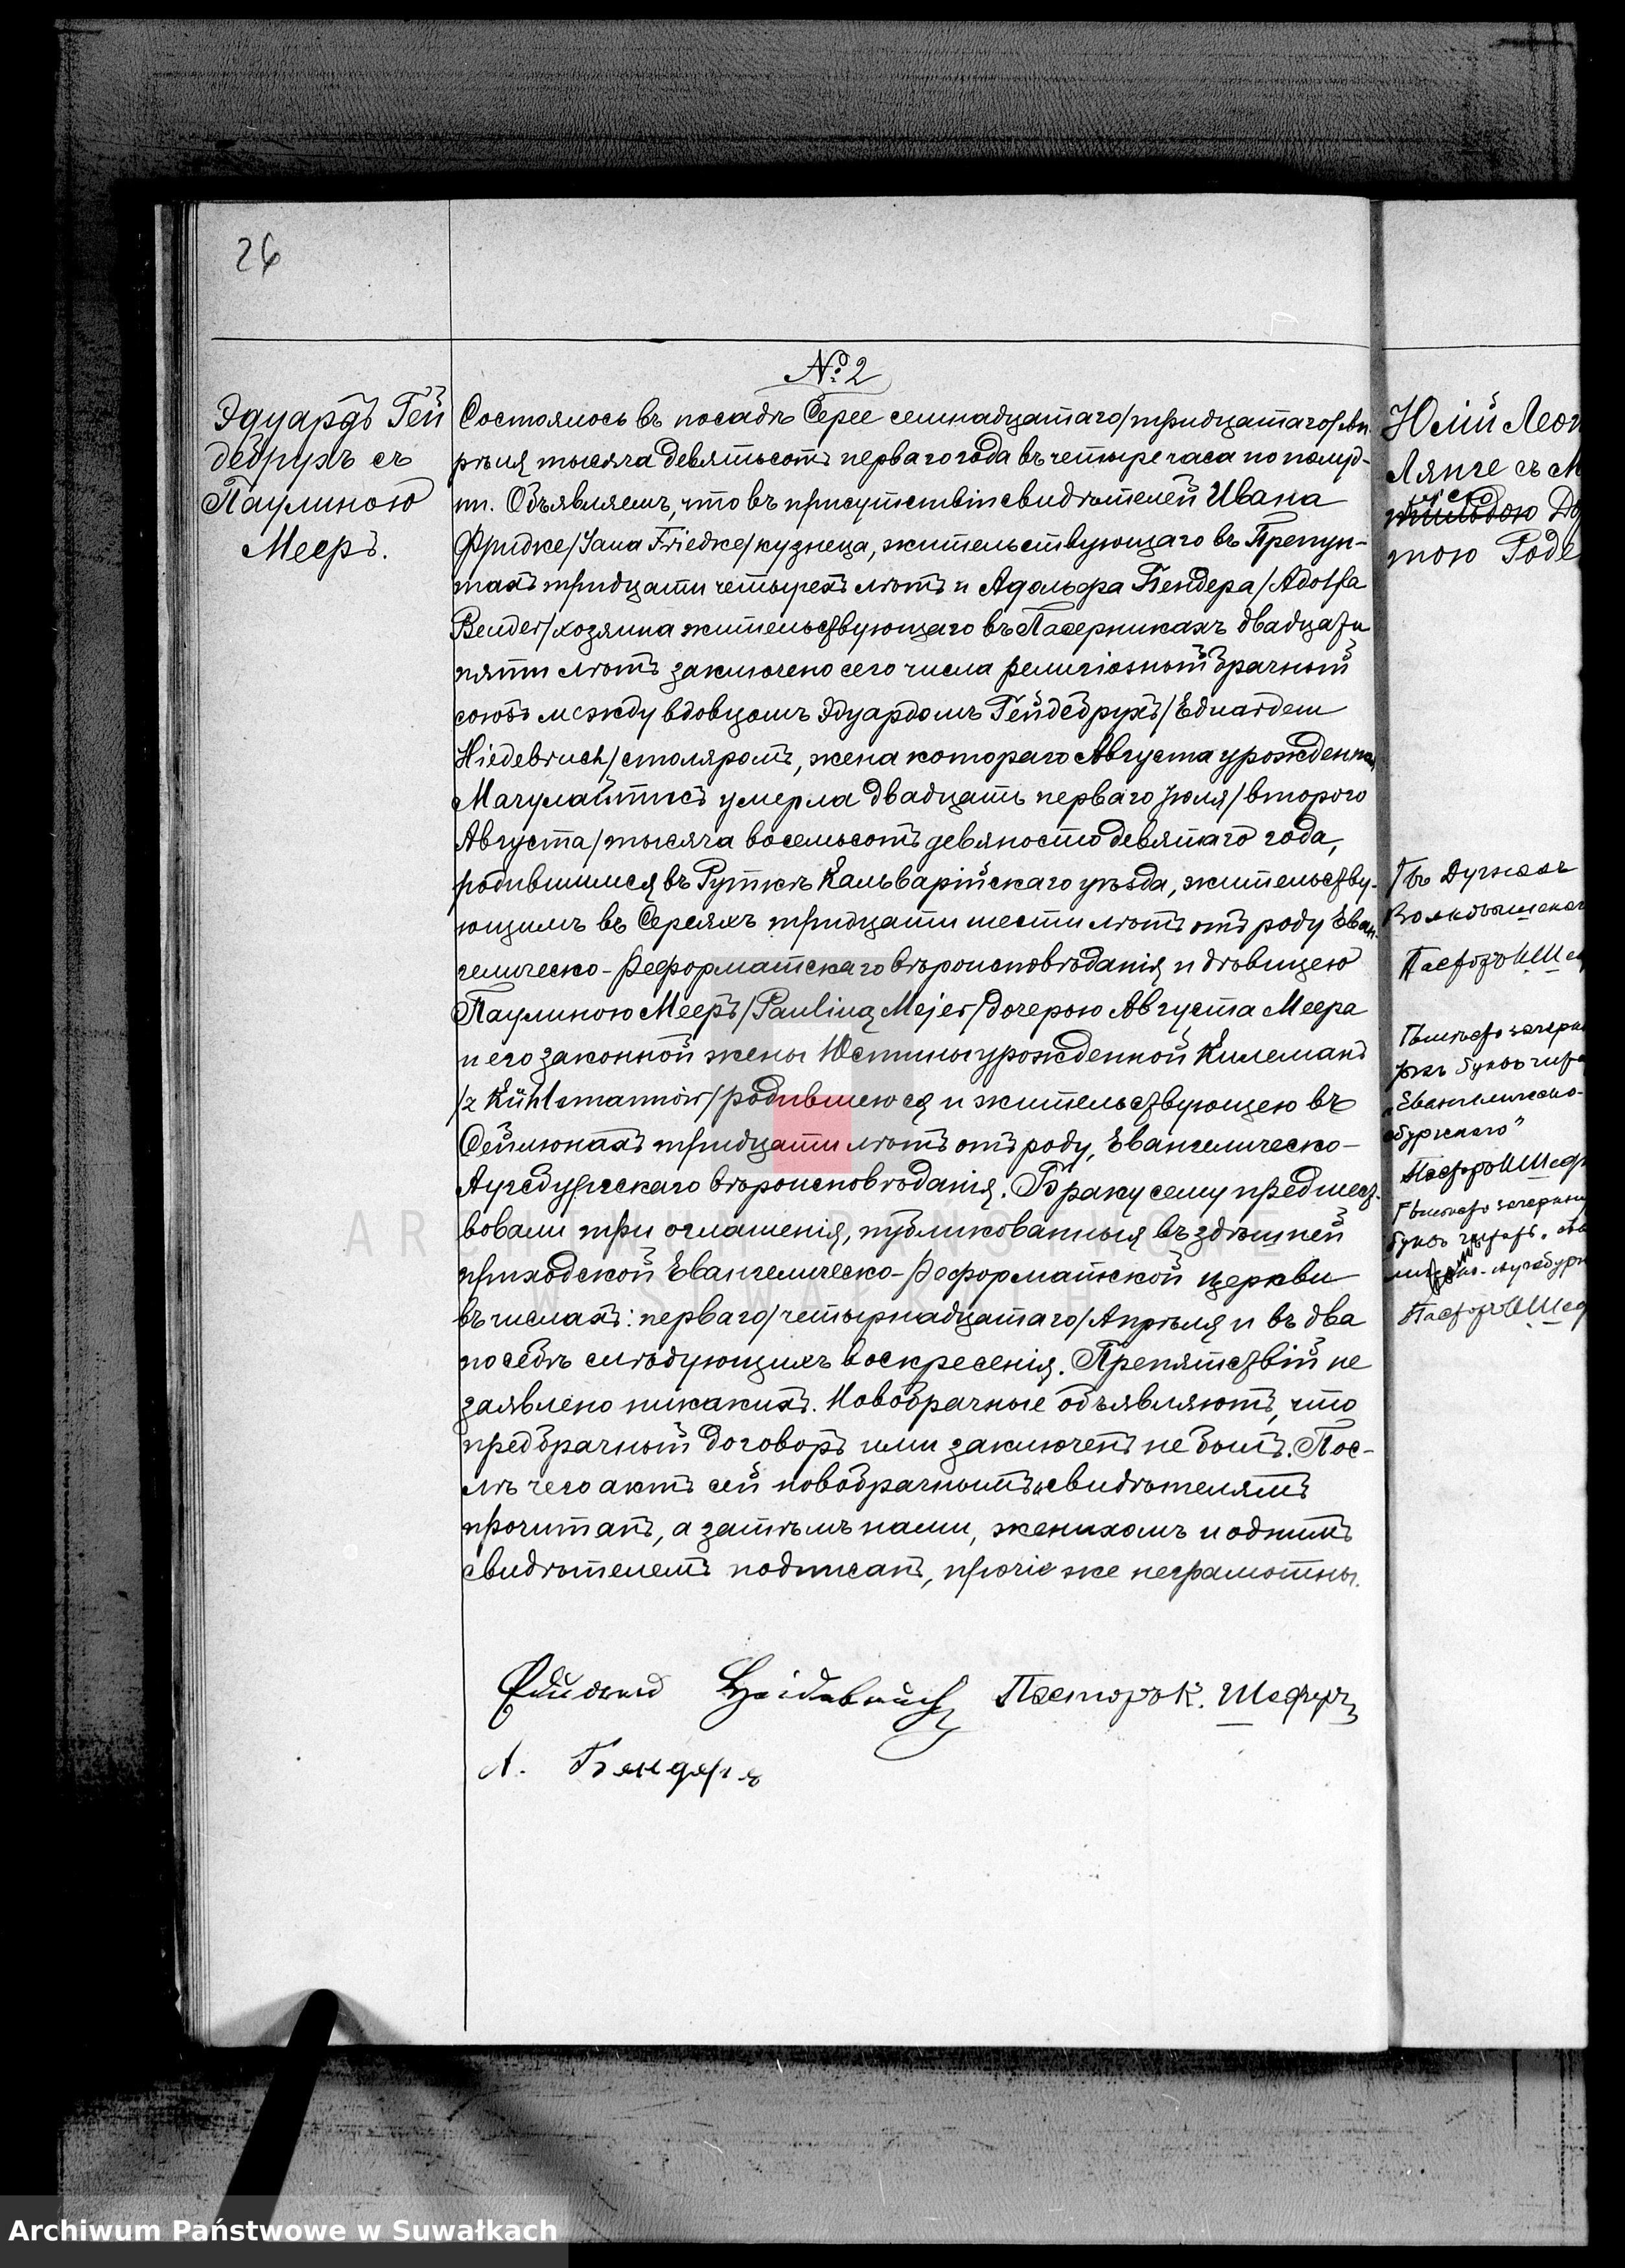 26
№ 2
Эдуардъ Гей
дебрухъ съ
Паулиною
Мееръ.
Состоялось въ посадѣ Серее семнадцатаго/тридцатаго/Ап-
рѣля тысяча девятьсотъ перваго года въ четыре часа по полуд-
ни. Объявляемъ, что въ присутствіи свидѣтелей Ивана
Фридке/Jana Friedke/кузнеца, жительствующаго въ Препун-
тахъ тридцати четырехъ лѣтъ и Адольфа Бендера/Adolfa
Bender/хозяина жительствующаго въ Пасерникахъ двадцати
пяти лѣтъ заключено сего числа религіозный брачный
союзъ между вдовцомъ Эдуардомъ Гейдебрухъ/Eduardem
Hiedebruch/столяромъ, жена котораго Августа урожденная
Мачулайтисъ умерла двадцать перваго Іюля/второго
Августа/тысяча восемьсотъ девяносто девятаго года,
родившимся въ Руткѣ Кальварійскаго уѣзда, жительству-
ющимъ въ Сереяхъ тридцати шести лѣтъ отъ роду Еван-
гелическо-Реформатскаго вѣроисповѣданія и дѣвицею
Паулиною Мееръ/Pauliną Mejer/дочерью Августа Меера
и его законной жены Юстины урожденной Килеманъ
/z Kühlemannów/родившеюся и жительствующею въ
Сейлюнахъ тридцати лѣтъ отъ роду, Евангелическо-
Аугсбургскаго вѣроисповѣданія. Браку сему предшест-
вовали три оглашенія, публикованныя въ здѣшней
приходской Евангелическо-Реформатской церкви
въ числахъ: перваго/четырнадцатаго/Апрѣля и въ два
по себѣ слѣдующихъ воскресенія. Препятствій не
заявлено никакихъ. Новобрачные объявляютъ, что
предбрачный договоръ ими заключенъ не былъ. Пос-
лѣ чего актъ сей новобрачнымъ и свидѣтелямъ
прочитанъ, а затѣмъ нами, женихомъ и однимъ
свидѣтелемъ подписанъ, прочіе же неграмотны.
Eduard Heidebruch Пасторъ К. Шеферъ
А. Бендеръ
Юлій Леоп
Лянге съ М
тою Роде
ARCHIWUM PAŃSTWOWE
W SUWAŁKACH
Archiwum Państwowe w Suwałkach